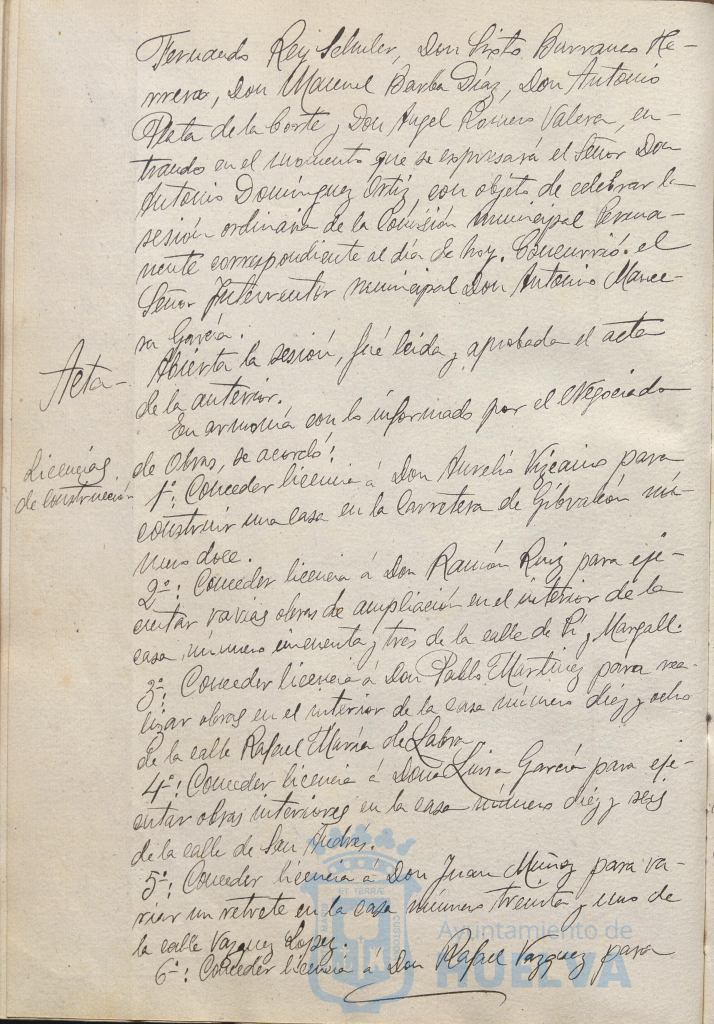 Fernando Rey Schuler, Don Sixto Burranco He-
rrera, Don Manuel Barba Díaz, Don Antonio
Plata de la Corte y Don Angel Romero Valera, en-
trando en el momento que se expresará el Señor Don
Antonio Domínguez Ortiz, con objeto de celebrar la
sesión ordinaria de la Comisión municipal Perma-
nente correspondiente al día de hoy. Concurrió el
Señor Interventor municipal Don Antonio Mance-
ra García.
Acta-
Abierta la sesión, fué leida y aprobada el acta
de la anterior.
En armonía con lo informado por el Negociado
Licencias
de construcción
de Obras, se acordó:
1º: Conceder licencia á Don Aurelio Vizcaino para
construir una casa en la Carretera de Gibraleón nú-
mero doce.
2º: Conceder licencia á Don Ramón Ruiz para eje-
cutar varias obras de ampliación en el interior de la
casa, número cincuenta y tres de la calle de Pi y Margall.
3º: Conceder licencia á Don Pablo Martinez para rea-
lizar obras en el interior de la casa número diez y ocho
de la calle Rafael María de Labra.
4º: Conceder licencia á Doña Luisa García para eje-
cutar obras interiores en la casa número diez y seis
de la calle de San Andrés.
5º: Conceder licencia á Don Juan Muñoz para va-
riar un retrete en la casa número treinta y uno de
la calle Vazquez Lopez.
6º: Conceder licencia á Don Rafael Vazquez para
Ayuntamiento de
HUELVA